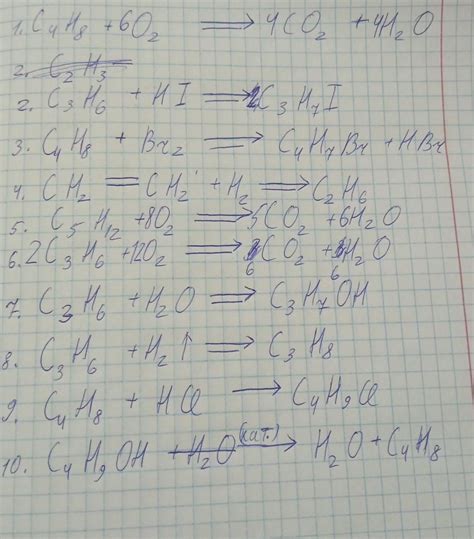 1. C₄H₈ + 6O₂ ⟹ 4CO₂ + 4H₂O
2. C₂H₃
2. C₃H₆ + HI ⟹ C₃H₇I
3. C₄H₈ + Br₂ ⟹ C₄H₇Br + HBr
4. CH₂ = CH₂ + H₂ ⟹ C₂H₆
5. C₅H₁₂ + 8O₂ ⟹ 5CO₂ + 6H₂O
6. 2C₃H₆ + 12O₂ ⟹ CO₂ + H₂O
6 6
7. C₃H₆ + H₂O ⟹ C₃H₇OH
8. C₃H₆ + H₂↑ ⟹ C₃H₈
9. C₄H₈ + HCl → C₄H₉Cl
10. C₄H₉OH + H₂O (кат.) → H₂O + C₄H₈